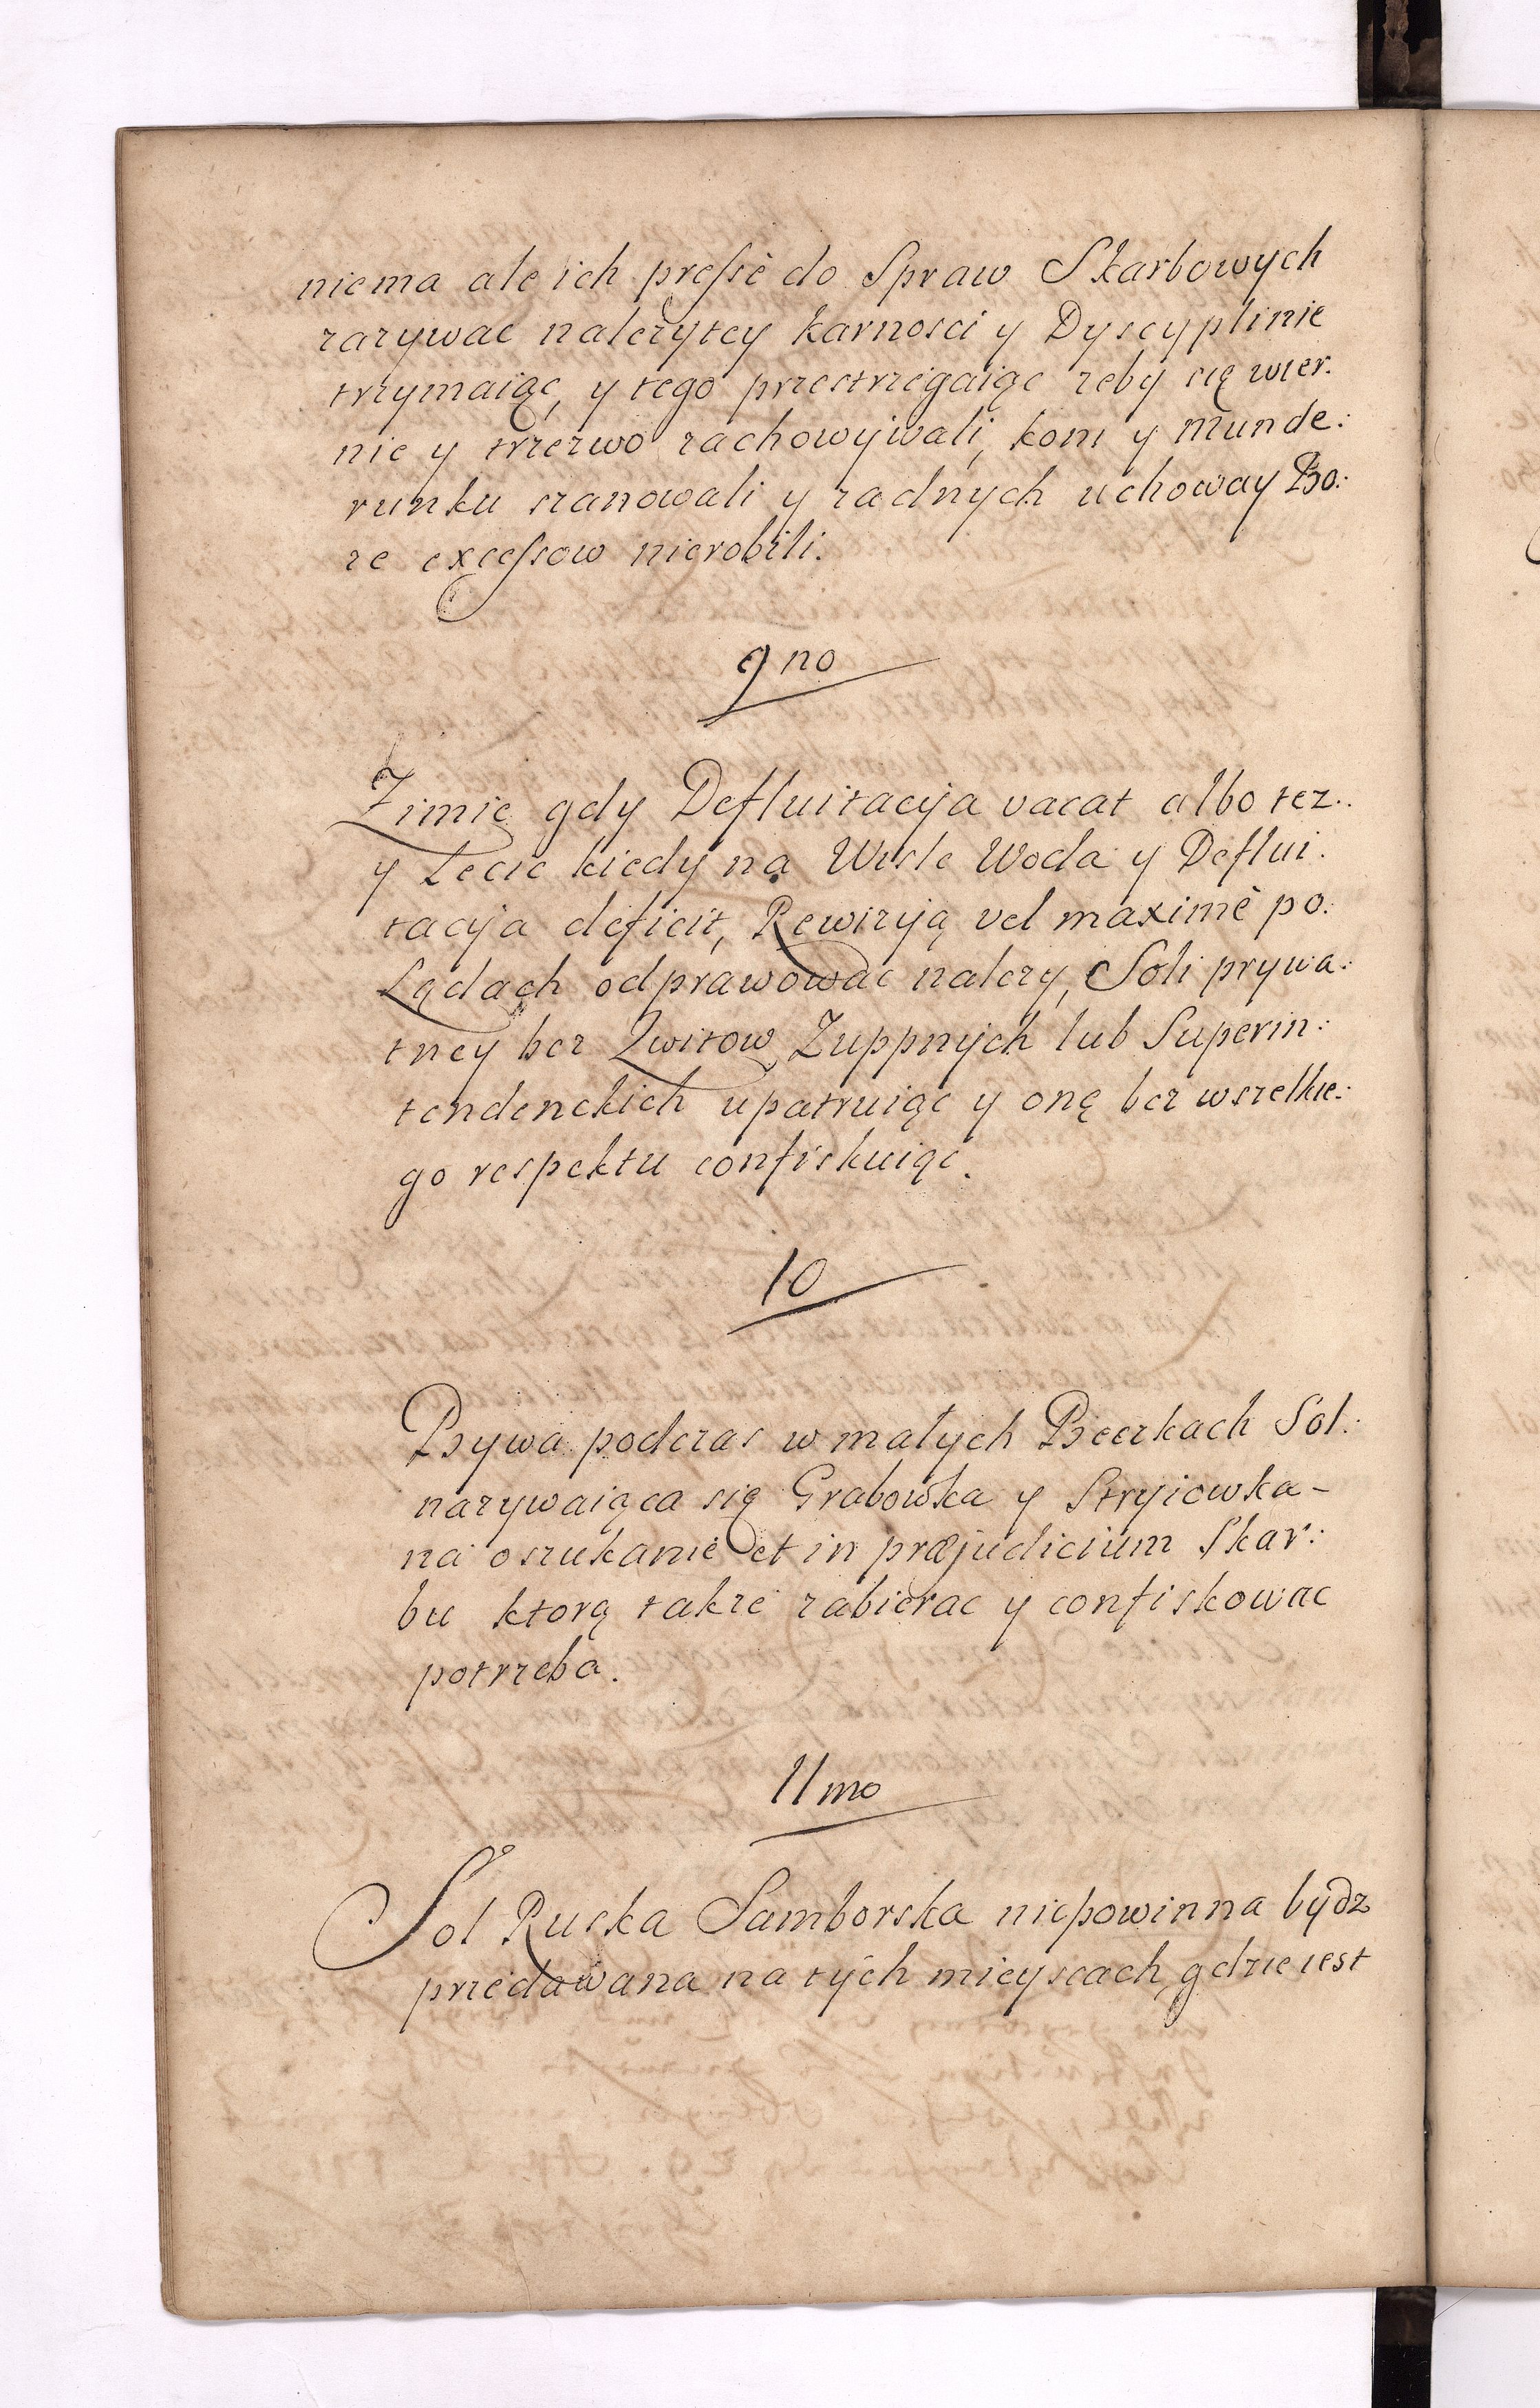 niema ale ich pressè do Spraw Skarbowych
zazywac nalezytey karnosci y Dyscyplinie
trzymaiąc, y tego przestrzegaiąc zeby się wier:
nie y trzezwo zachowywali, koni y munde:
runku szanowali y zadnych uchoway Bo:
ze excessow nierobili.
9no
Zimie gdy Defluitacyja vacat albo tez
y Lecie kiedy na Wisle Woda y Deflui:
tacyja deficit, Rewizyą vel maximè po:
Lądach odprawowac nalezy, Soli prywa:
tney bez Qwitow Zuppnych lub Superin:
tendenckich upatruiąc y onę bez wszelkie:
go respektu confiskuiąc.
10
Bywa podczas w małych Beczkach Sol:
nazywaiąca się Grabowska y Stryiowka -
na oszukanie et in præjudicium Skar:
bu ktorą takze zabierac y confiskowac
potrzeba.
11mo
Sol Ruska Samborska niepowinna bydz
przedawana na tych mieyscach, gdzie iest